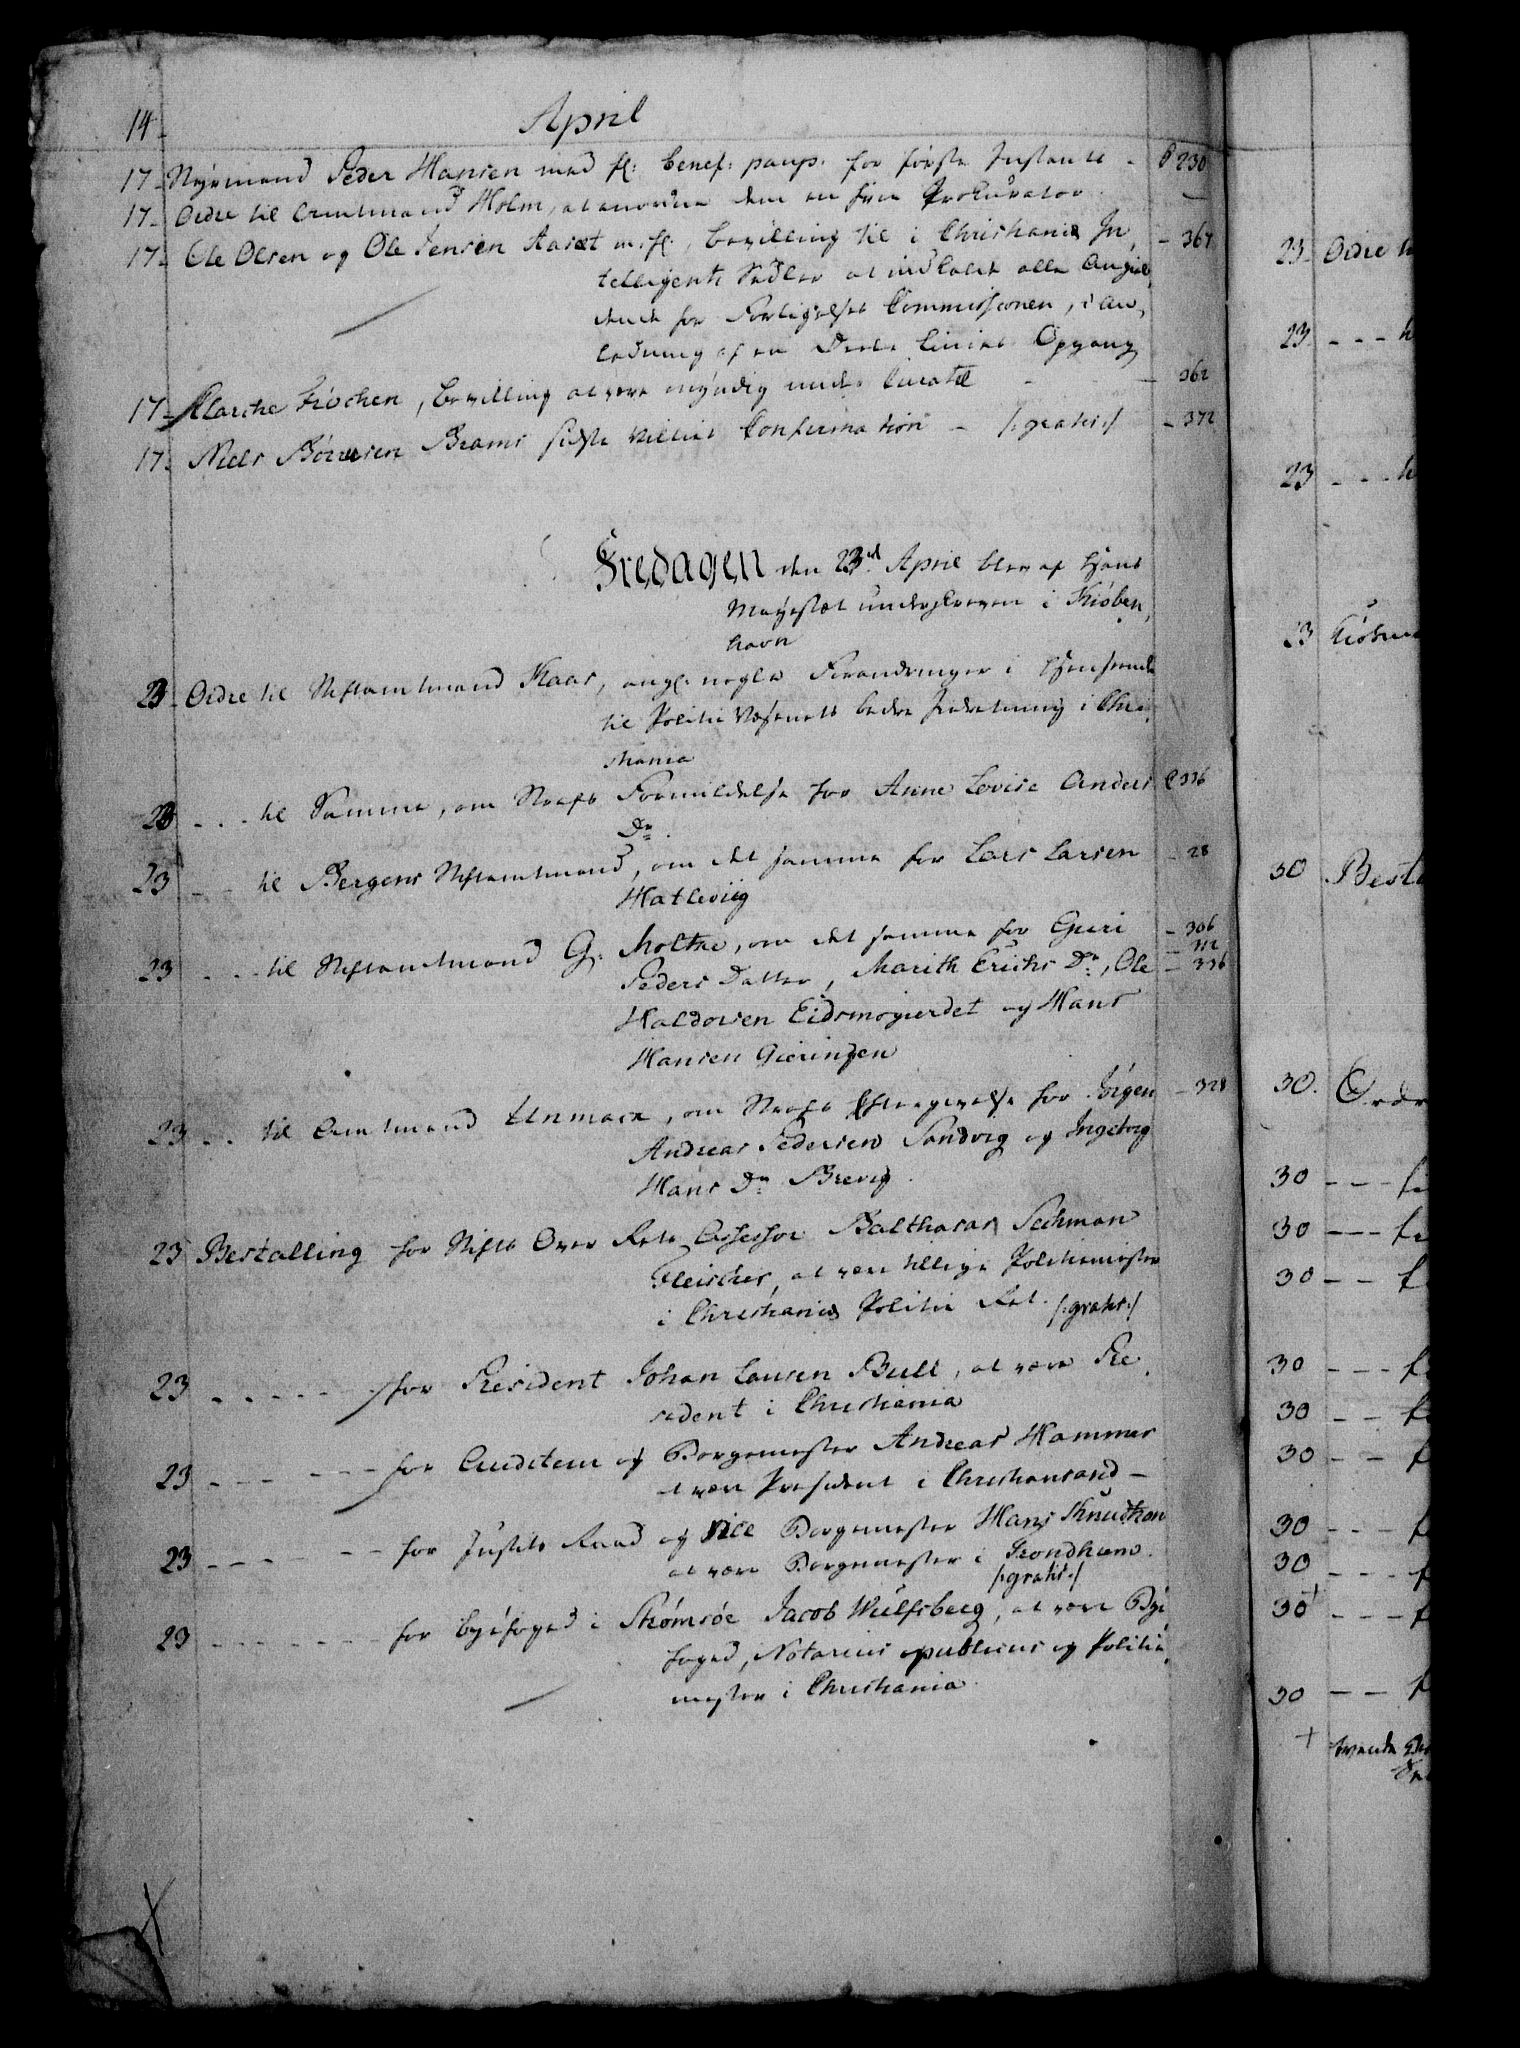 14.
April
17. Styrmand Peder Hansen med fl: benef: paup. for første Instants - P 230
17. Ordre til Amtmand Holm, at anordne dem en hver Prokurator. —
17. Ole Olsen og Ole Jensen Aaset m. fl., bevilling til i Christiania In, - 367
telligents Sedler at indkalde alle Angiæl,
dende for Forligelses Commissionen, i An,
ledning af en Deels Linies Opgang
17. Marche Fischen, bevilling at være myndig under Curatel - 362
17. Niels Börresen Brams sidste Villies Confirmation - /: gratis :/ - 372
Fredagen den 23d April blev af Hans
Majestæt underskreven i Kiøben,
havn
23. Ordre til Stiftamtmand Kaas, angl: nogle Forandringer i Henseende
til Politie Væsenets bedre Indretning i Chri,
stiania
23 . . . til Samme, om Straffs Formildelse for Anne Lovise Anders P 336
Dr.
23 - - til Bergens Stiftamtmand, om det samme for Lars Larsen - 28
Hatleviig
23 . . . til Stiftamtmand G: Moltke, om det samme for Guri - 306
Peders Datter, Marith Erichs Dr:, Ole - 312 - 336
Haldorsen Eidsmogierdet og Hans
Hansen Gieringen
23 . . til Amtmand Unmack, om Straffs Eftergivelse for Jørgen - 328
Andreas Pedersen Sandvig og Ingeborg
Hans Dr: Brevig.
23 Bestalling for Stifts Over Rets Assessor Balthasar Sechman
Fleischer, at være tillige Politiemester
i Christianiæ Politie Ret. /: gratis :/
23 . . . . . . for President Johan Lausen Bull, at være Pre,
sident i Christiania
23 - - - - - - for Auditeur og Borgemester Andreas Hammer
at være President i Christiansand -
23 - - - - - - for Justits Raad og vice Borgemester Hans Knudtzon
at være Borgemester i Trondhiem.
/: gratis :/
23 - - - - - - for Byefoged i Strømsøe Jacob Wulfsberg, at være Bye
foged, Notarius publicus og Politie,
mester i Christiania.
23. Ordre
23 - - -
23 - - -
23
30 Besta
30. Ordr
30 - - -
30 - - -
30 - -
30 - - -
30 - -
30 - -
30 - - -
30 - - -
30 - - -
30 - -
+